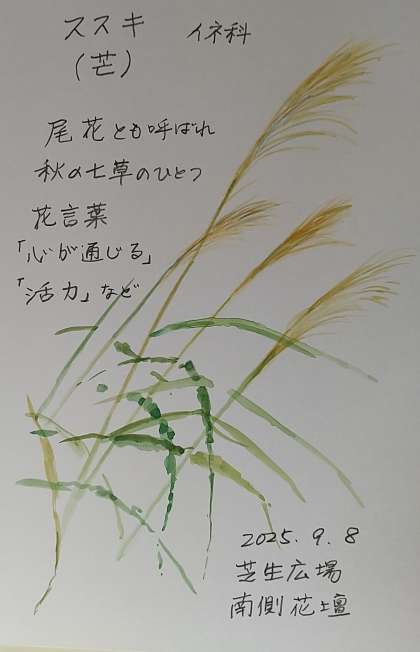 ススキ イネ科
(芒)
尾花とも呼ばれ
秋の七草のひとつ
花言葉
「心が通じる」
「活力」など
2025.9.8
芝生広場
南側花壇